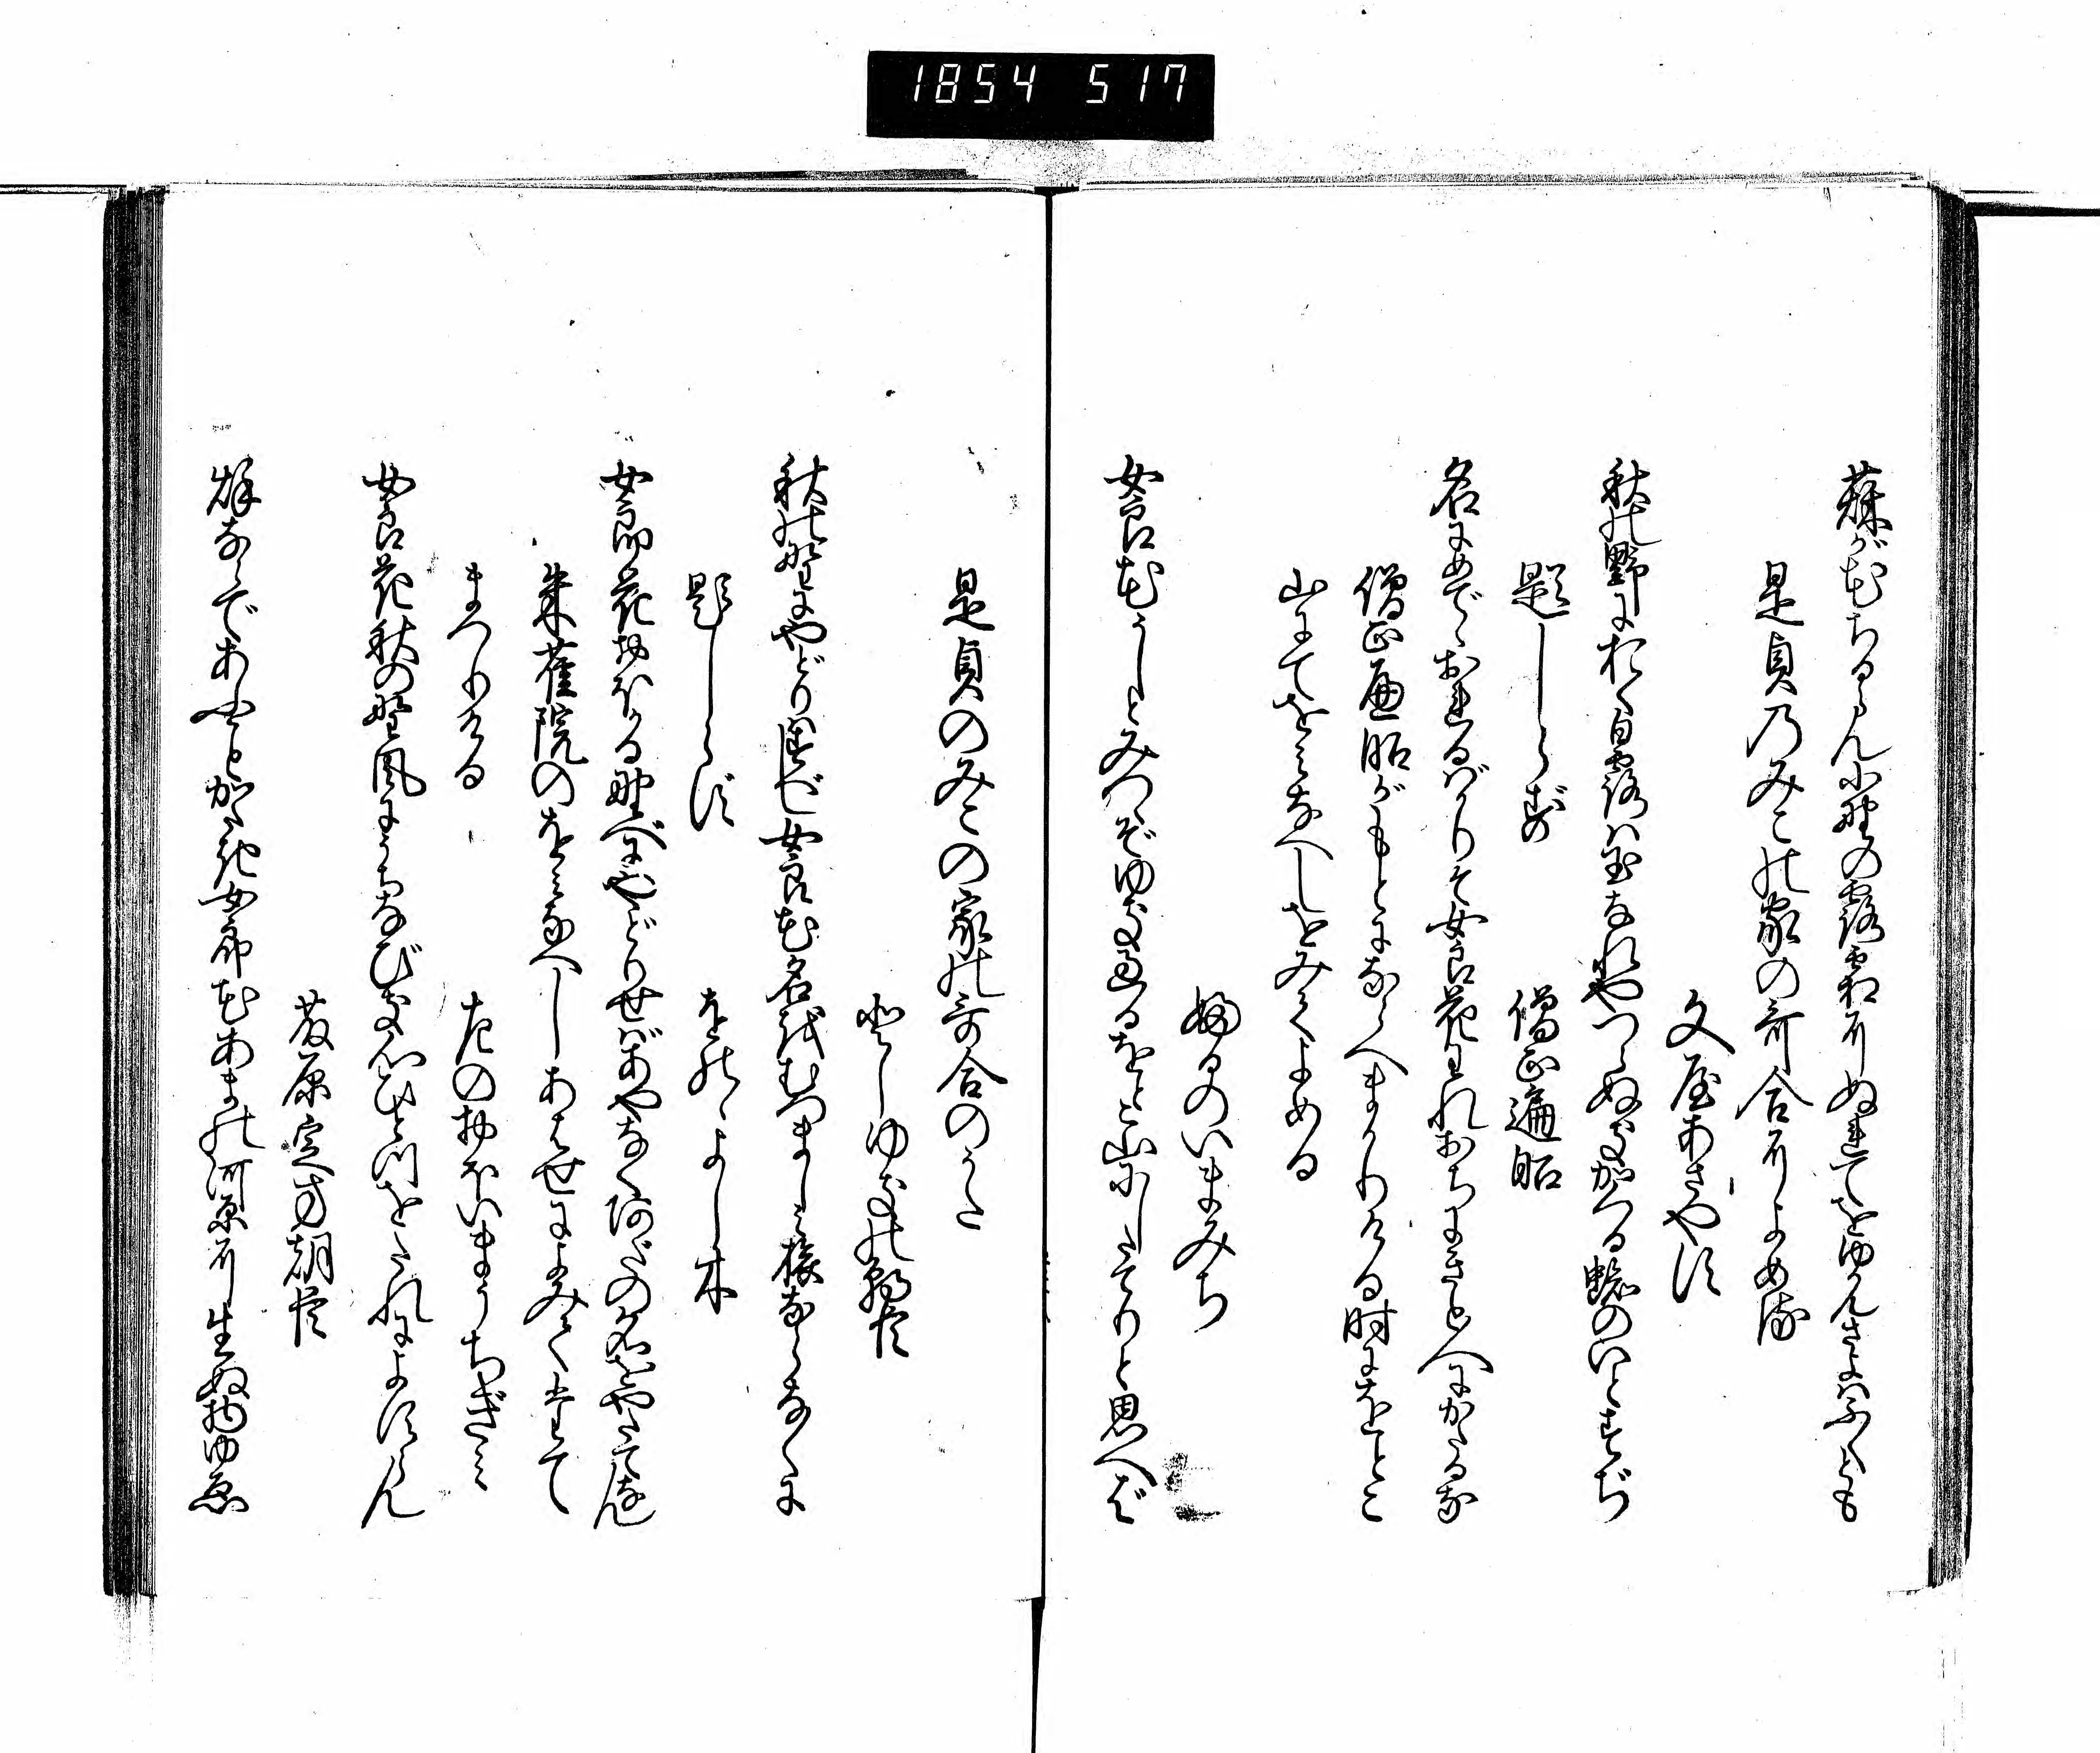 1854 517
萩が花ちるらん小野の露霜にぬれてをゆかんさよはふくとも
是貞のみこの家の哥合によめる
文屋あさやす
秋の野におく白露は玉なれやつらぬきかくる蜘のいとすぢ
題しらず 僧正遍昭
名にめでゝおれるばかりぞ女良花われおちにきと人にかたるな
僧正遍昭がもとにならへまかりける時にをとこ
山にてをみなへしをみてよめる
ふるのいまみち
女良花うしとみつゝぞゆき過るをとこ山にしたてりと思へば
是貞のみこの家の哥合のうた
としゆきの朝臣
秋の野にやどりはすべし女良花名をむつましみ旅ならなくに
題しらず をのゝよし木
女郎花おほかる野べにやどりせばあやなくあだの名をやたちなん
朱雀院のをみなへしあはせによみてたて
まつりける 左のおほいまうちぎみ
女良花秋の野風にうちなびき心ひとつをたれによすらん
藤原定方朝臣
秋ならであふことかたき女郎花あまの河原に生ぬ物ゆゑ